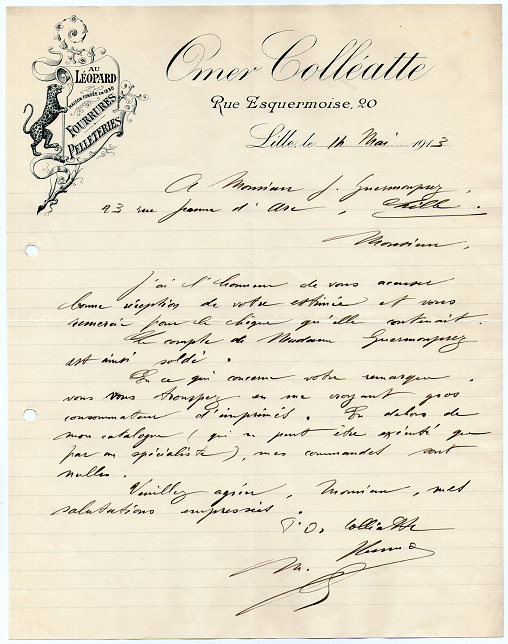 AU
LÉOPARD
MAISON FONDÉE EN 1830
FOURRURES
PELLETERIES
Omer Colléatte
Rue Esquermoise, 20
Lille, le 14 Mai 1913
A Monsieur J. Guermonprez,
23 rue Jeanne d'Arc, Lille.
Monsieur,
J'ai l'honneur de vous accuser
bonne réception de votre estimée et vous
remercie pour le chèque qu'elle contenait.
Le compte de Madame Guermonprez
est ainsi soldé.
En ce qui concerne votre remarque,
vous vous trompez en me croyant gros
consommateur d'imprimés. En dehors de
mon catalogue (qui ne peut être exécuté que
par un spécialiste), mes commandes sont
nulles.
Veuillez agréer, Monsieur, mes
salutations empressées.
Colléatte